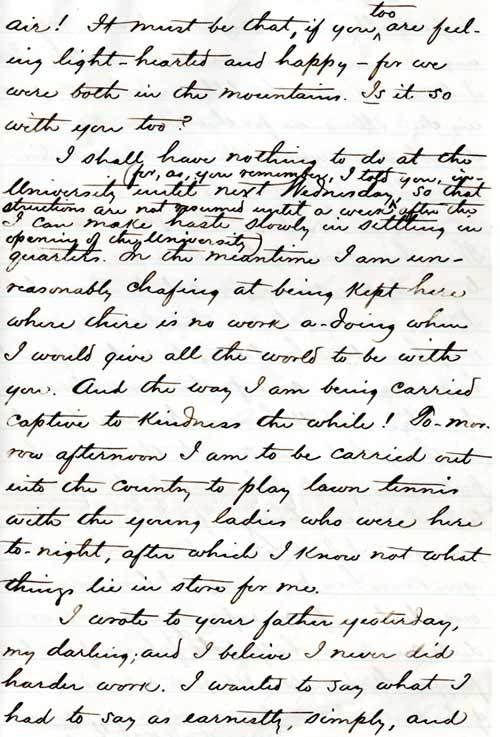 air! It must be that, if you ^too are feel-
ing light-hearted and happy - for we
were both in the mountains. Is it so
with you too?
I shall have nothing to do at the
University until next Wednesday,
(for, as, you remember, I told you, in-
structions are not resumed until a week after the
opening of the University)
so that
I can make haste slowly in settling in
quarters. In the meantime I am un-
reasonably chafing at being kept here
where there is no work a-doing when
I would give all the world to be with
you. And the way I am being carried
captive to kindness the while! To-mor-
row afternoon I am to be carried out
into the country to play lawn tennis
with the young ladies who were here
to-night, after which I know not what
things lie in store for me.
I wrote to your father yesterday,
my darling; and I believe I never did
harder work. I wanted to say what I
had to say as earnestly, simply, and